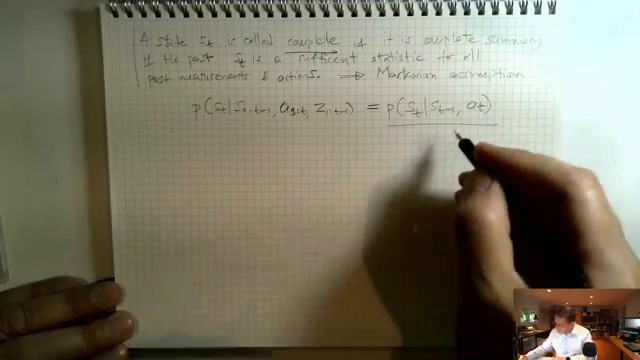 A state St is called complete if it is complete summary
if the past St is a sufficient statistic for all
past measurements & actions. ⟹ Markovian assumption
p(St|S0:t-1, a1:t, z1:t-1) = p(St|St-1, at)